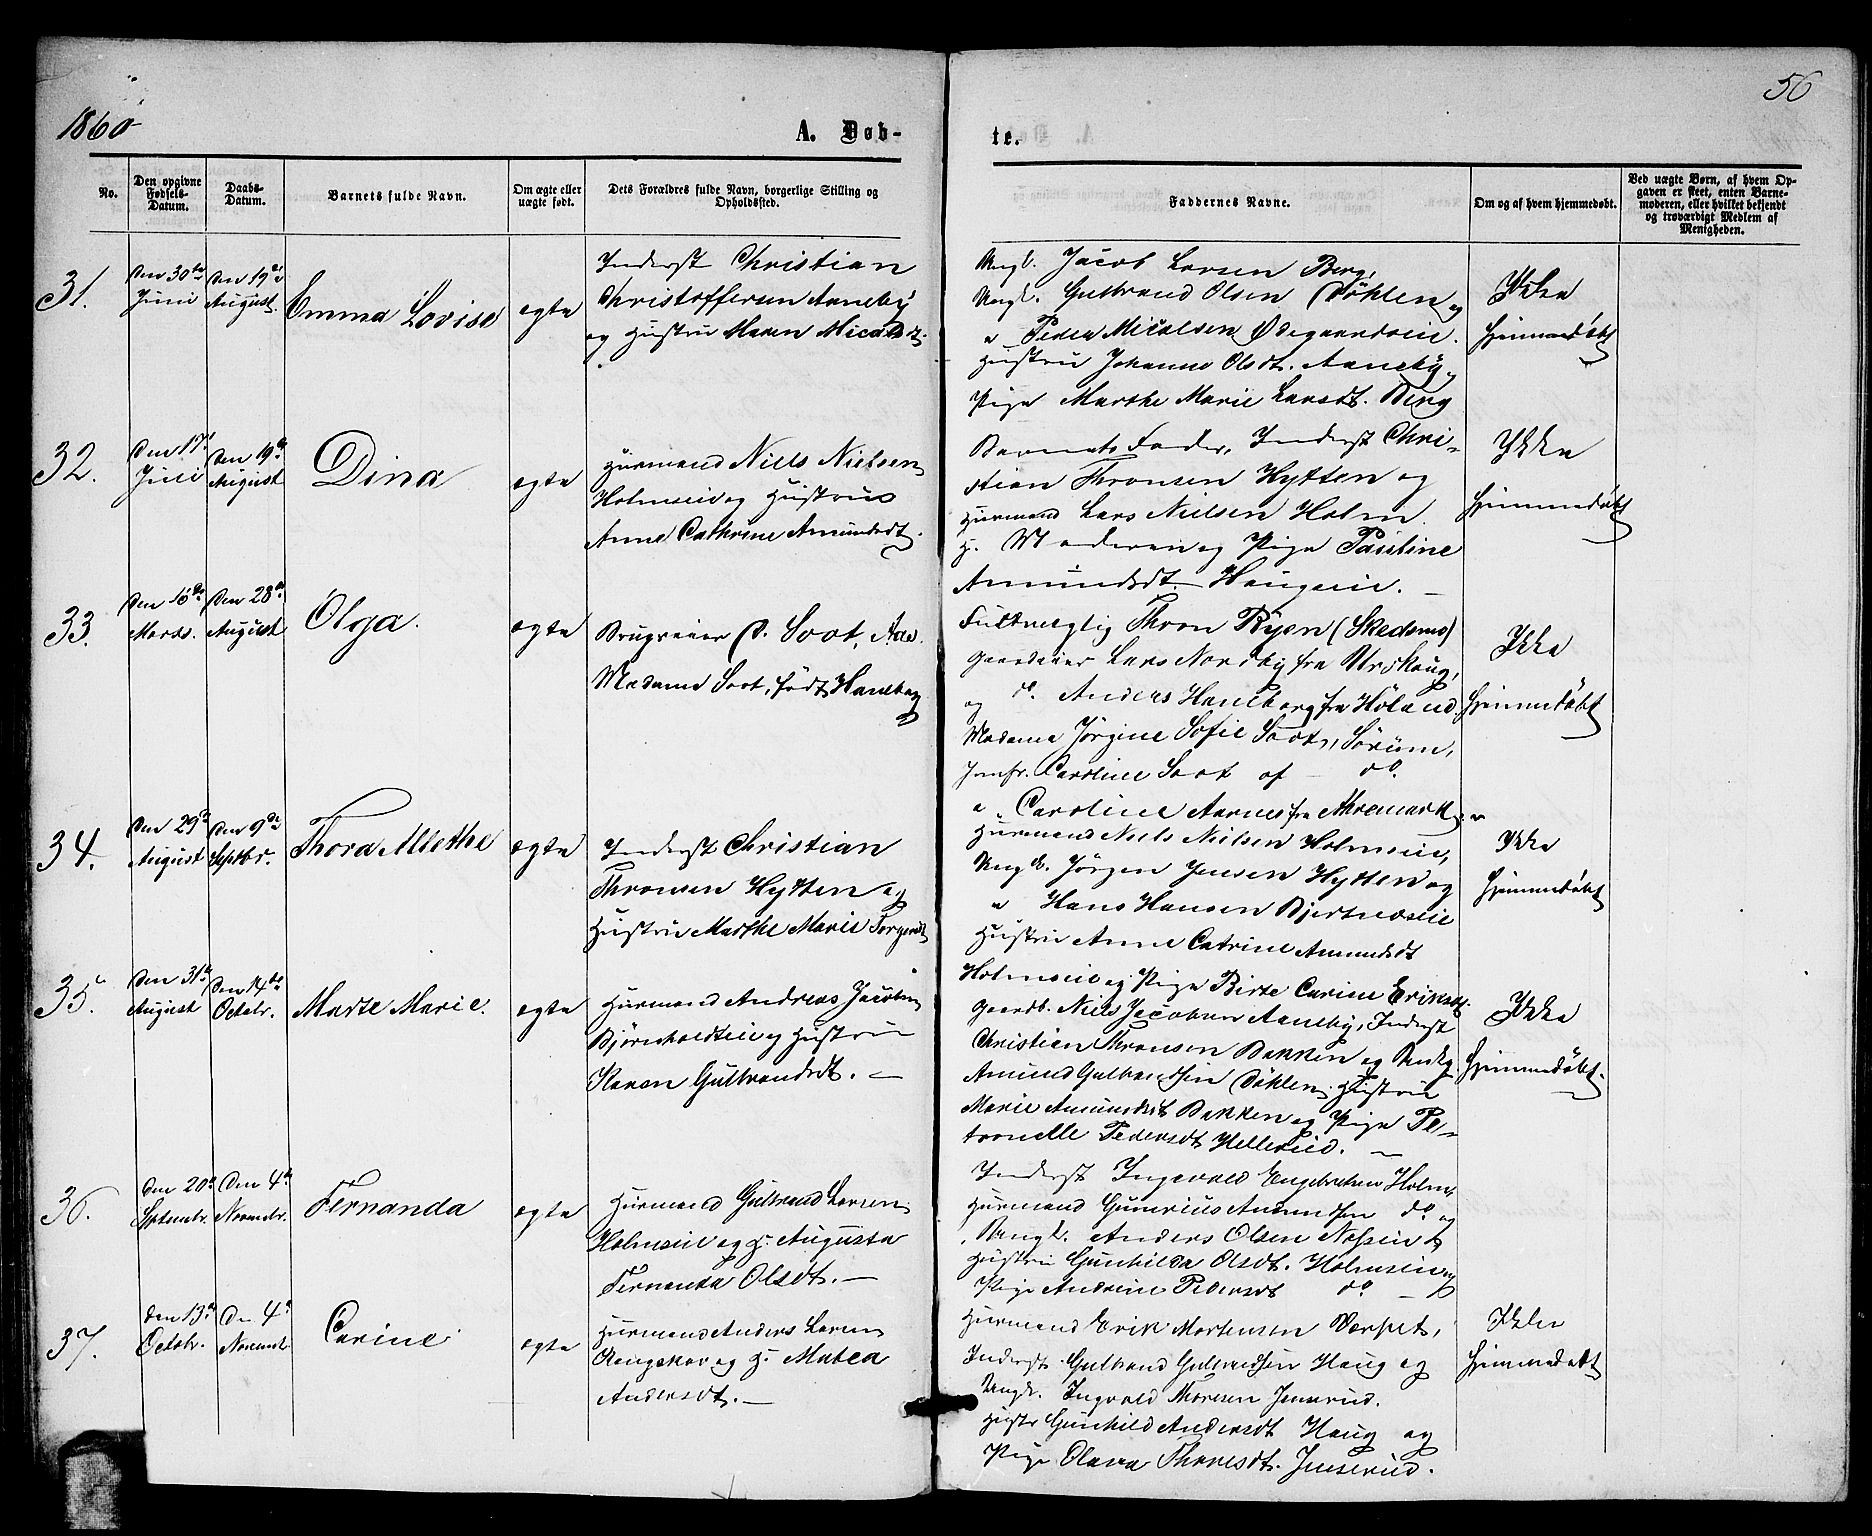 56
1860
A. Døb-
te.
No.
Den opgivne Fødsels-Datum.
Daabs-Datum.
Barnets fulde Navn.
Om ægte eller uægte født.
Dets Forældres fulde Navn, borgerlige Stilling og Opholdssted.
Faddernes Navne.
Om og af hvem hjemmedøbt.
Ved uægte Børn, af hvem Op-
gaven er skeet, enten Barne-
moderen, eller hvilket bekjendt
og troværdigt Medlem af
Menigheden.
31.
den 30te Juni
den 19de August.
Emma Lovise
ægte
Inderst Christian
Christoffersen Aaneby
og Hustru Maren Micalsdt.
Ungk. Jacob Larsen Berg,
Ungk. Gulbrand Olsen Døhlen og
" Peder Micalsen Ødegaardseie.
Hustru Johanne Olsdt. Aaneby,
Pige Marthe Marie Larsdt. Berg
Ikke
hjemmedøbt
32.
den 17de Juli
den 19de August
Dina
ægte
Huusmand Niels Nielsen
Holmseie og Hustrue
Anne Cathrine Amundsdt.
Barnets Fader, Inderst Chri-
stian Thronsen Hytten og
Huusmand Lars Nielsen Holm.
H. Moderen og Pige Pauline
Amundsdt. Haugeeie.
Ikke
hjemmedøbt
33.
den 16de Marts.
den 28de August
Olga.
ægte
Brugseier O. Soot, Aas.
Madame Soot, født Haneborg
Fuldmægtig Thron Ryen (Skedsmo)
Gaardeier Lars Nordby fra Urskoug,
og do. Anders Haneborg fra Høland
Madame Jørgine Sofie Soot, Sørum,
Jomfr. Caroline Soot af do.
" Caroline Aarnes fra Aremark
Ikke
hjemmedøbt
34.
den 29de August
den 9de Septbr.
Thora Alethe
ægte
Inderst Christian
Thronsen Hytten og
Hustru Marthe Marie Torgersdt
Huusmand Niels Nielsen Holmseie,
Ungk. Jørgen Jensen Hytten og
" Hans Hansen Bjertnæseie
Hustru Anne Catrine Amundsdt
Holmseie og Pige Birte Carine Eriksdt.
Ikke
hjemmedøbt
35.
den 31te August
den 14de Octobr.
Marte Marie.
ægte
Huusmand Andreas Jacobsen
Bjørnholdteie og Hustrue
Karen Gulbrandsdt.
Gaardb. Niels Jacobsen Aaneby, Inderst
Christian Thronsen Bakken og Ungk.
Amund Gulbrandsen Døhlen. Hustrue
Marie Amundsdt. Bakken og Pige Pe-
tronelle Pedersdt. Hellerud.
Ikke
hjemmedøbt.
36.
den 20de Septembr.
den 4de Novembr.
Fernanda
ægte
Huusmand Gulbrand Larsen
Holmseie og H. Augusta
Fernanda Olsdt.
Inderst Ingevald Engebretsen Holm,
Huusmand Gunerius Amundsen do. og
Ungk. Anders Olsen
Hustru Gunhilda Olsdt. Holmseie og
Pige Andrine Pedersdt do.
37.
den 13de Octobr.
den 4de Novembr
Carine
ægte
Huusmand Anders Larsen
og H. Matea
Andersdt.
Huusmand Erik Mortensen Værpet,
Inderst Gulbrand Gulbrandsen Haug og
Ungk. Ingvald Thoresen Jenserud.
Hustr Gunhild Andersdt Haug og
Pige Olava Thoresdt. Jenserud.
Ikke
hjemmedøbt